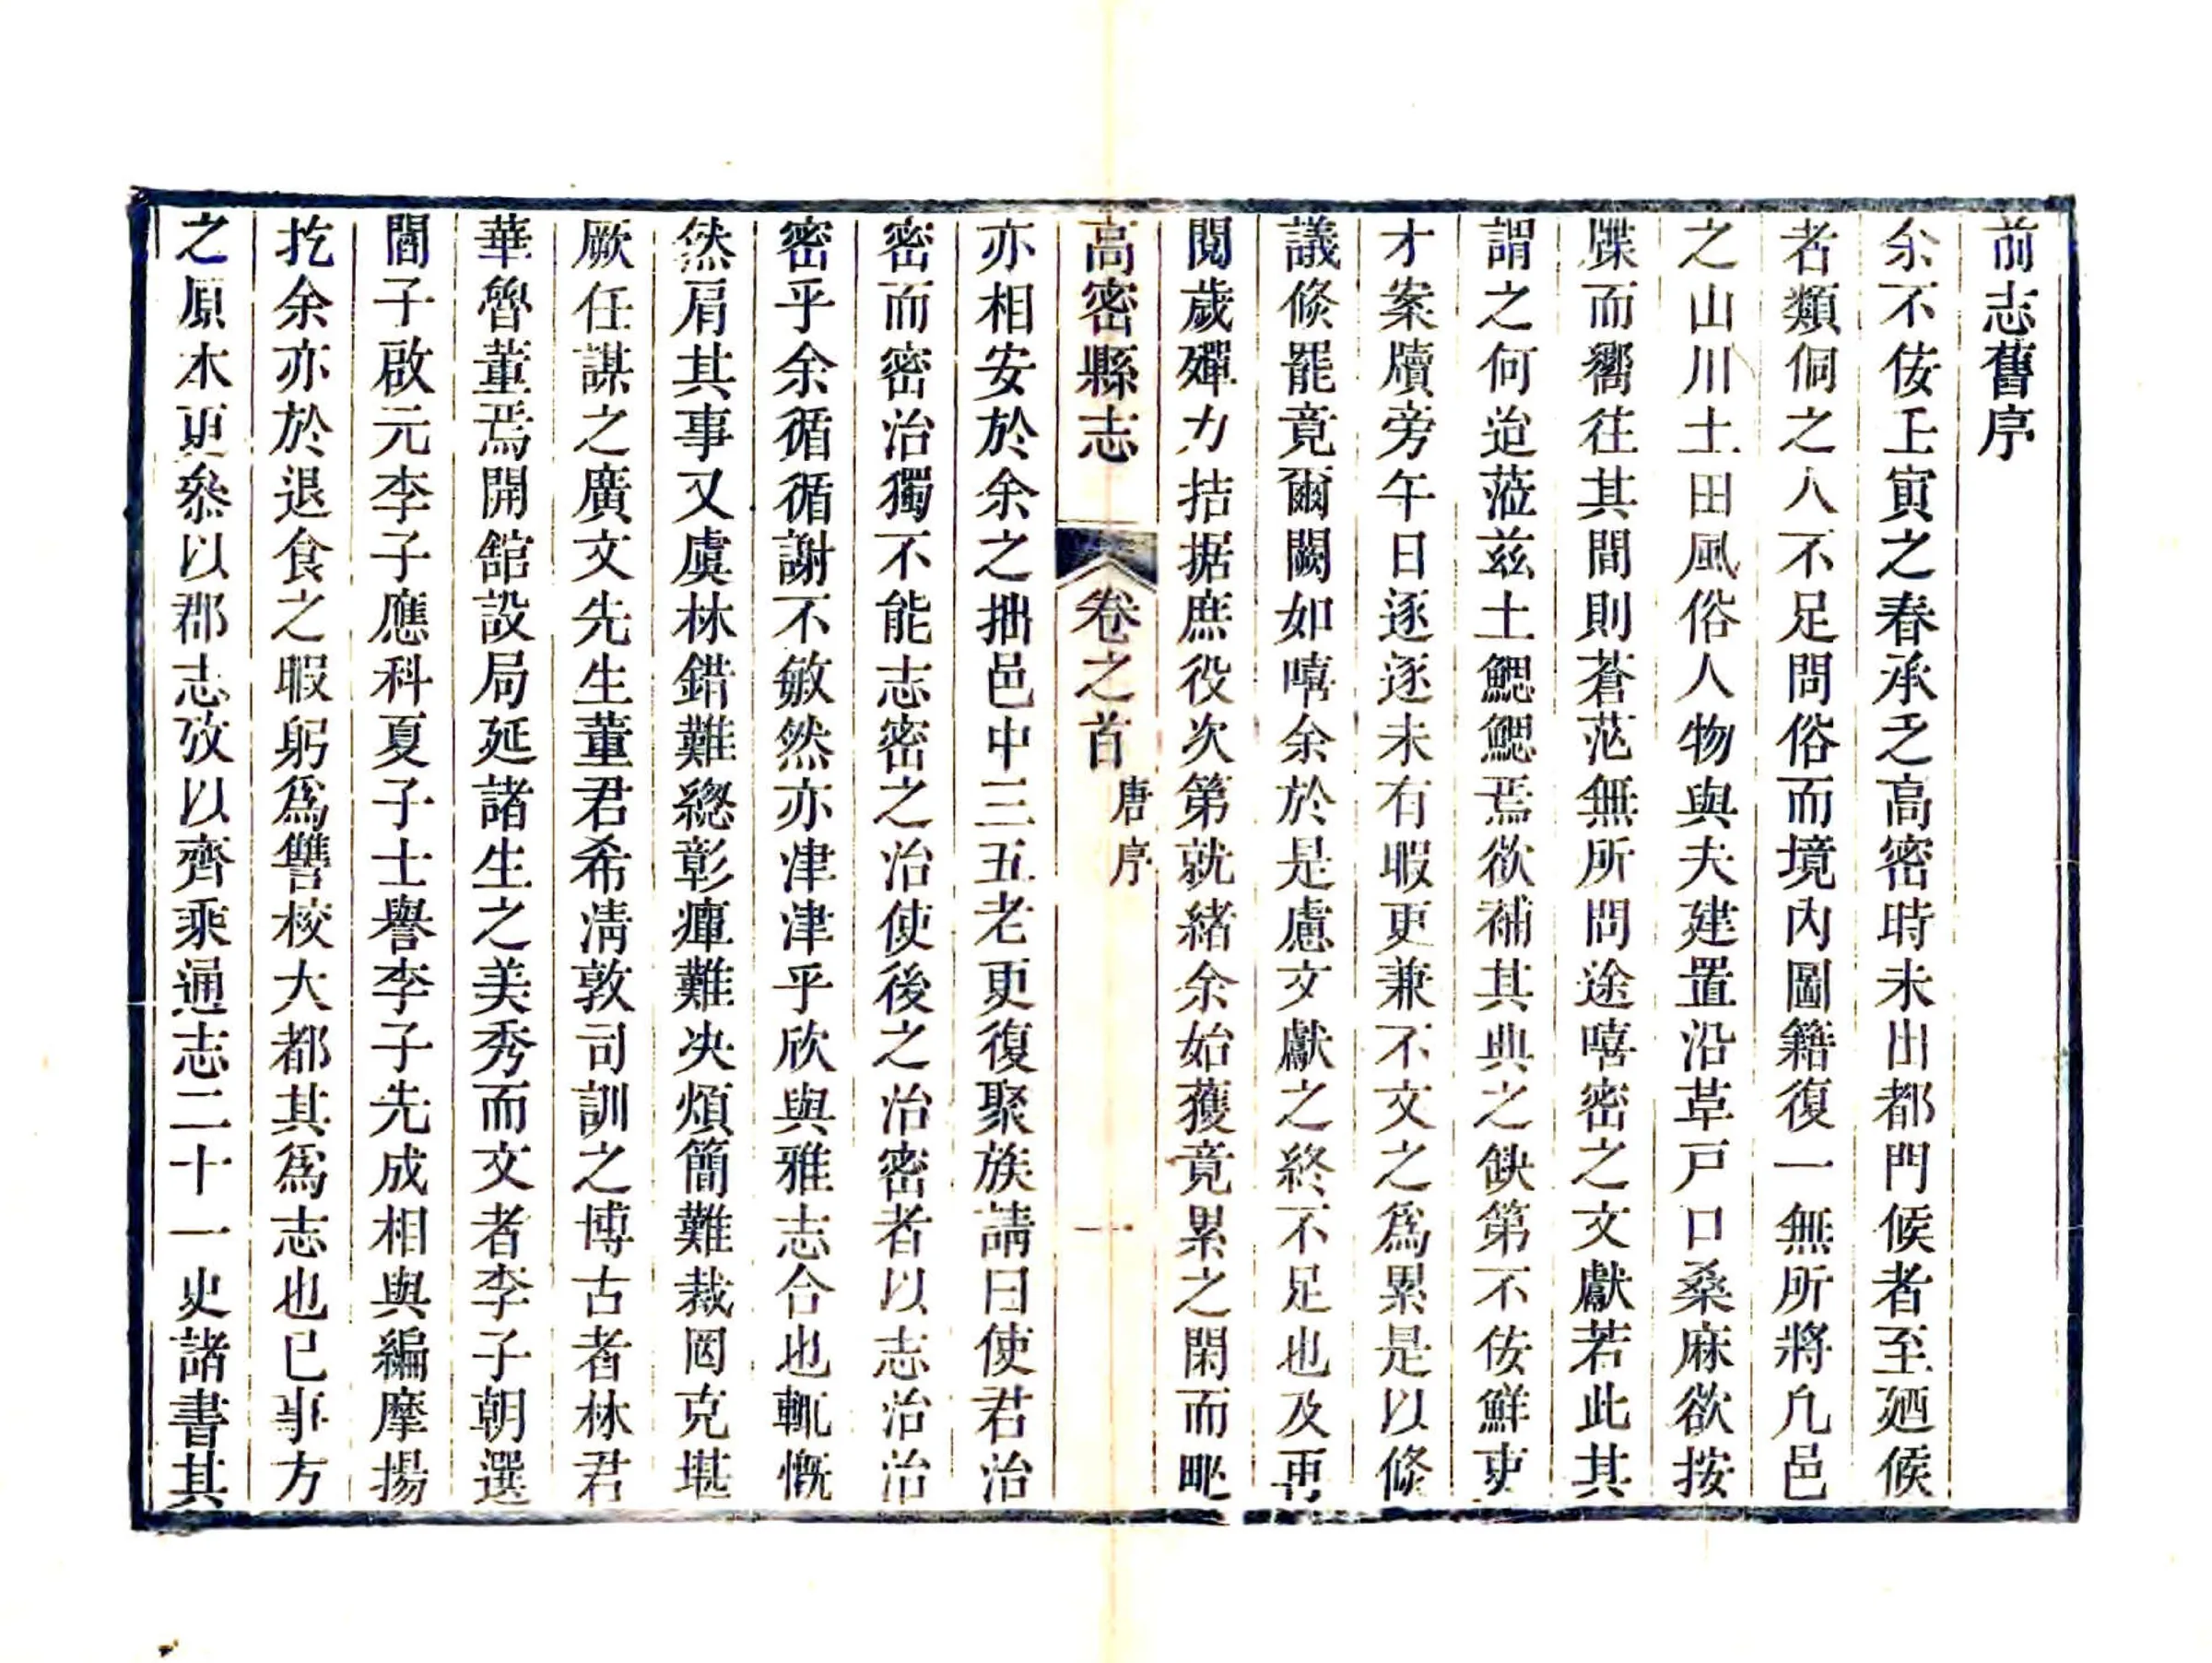 前志舊序
余不佞壬寅之春承乏高密時未出都門候者至廼候
者類侗之人不足問俗而境內圖籍復一無所將凡邑
之山川土田風俗人物與夫建置沿革戶口桑麻欲按
牒而嚮往其間則蒼茫無所問途嘻密之文獻若此其
謂之何迨蒞茲土鰓鰓焉欲補其典之缺第不佞鮮吏
才案牘旁午日逐逐未有暇更兼不文之爲累是以修
議倏罷竟爾闕如嘻余於是慮文獻之終不足也及再
閱歲殫力拮据庶役次第就緒余始獲竟累之閑而甿
高密縣志 卷之首 唐序 一
亦相安於余之拙邑中三五老更復聚族請曰使君治
密而密治獨不能志密之治使後之治密者以志治治
密乎余循循謝不敏然亦津津乎欣與雅志合也輒慨
然肩其事又虞林錯難總彰癉難决煩簡難裁罔克堪
厥任謀之廣文先生董君希淸敦司訓之博古者林君
華魯董焉開舘設局延諸生之美秀而文者李子朝選
閻子啟元李子應科夏子士譽李子先成相與編摩揚
扢余亦於退食之暇躬爲讐校大都其爲志也已事方
之原本更叅以郡志攷以齊乘通志二十一史諸書其